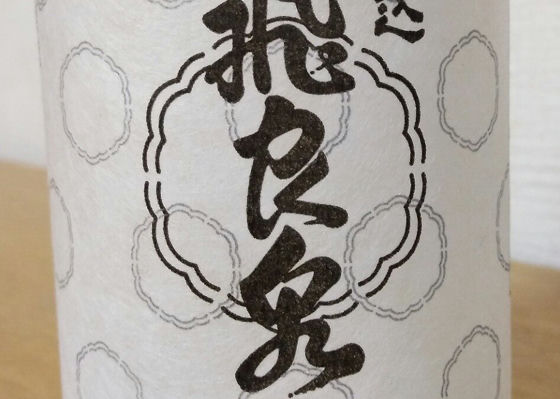 飛良泉